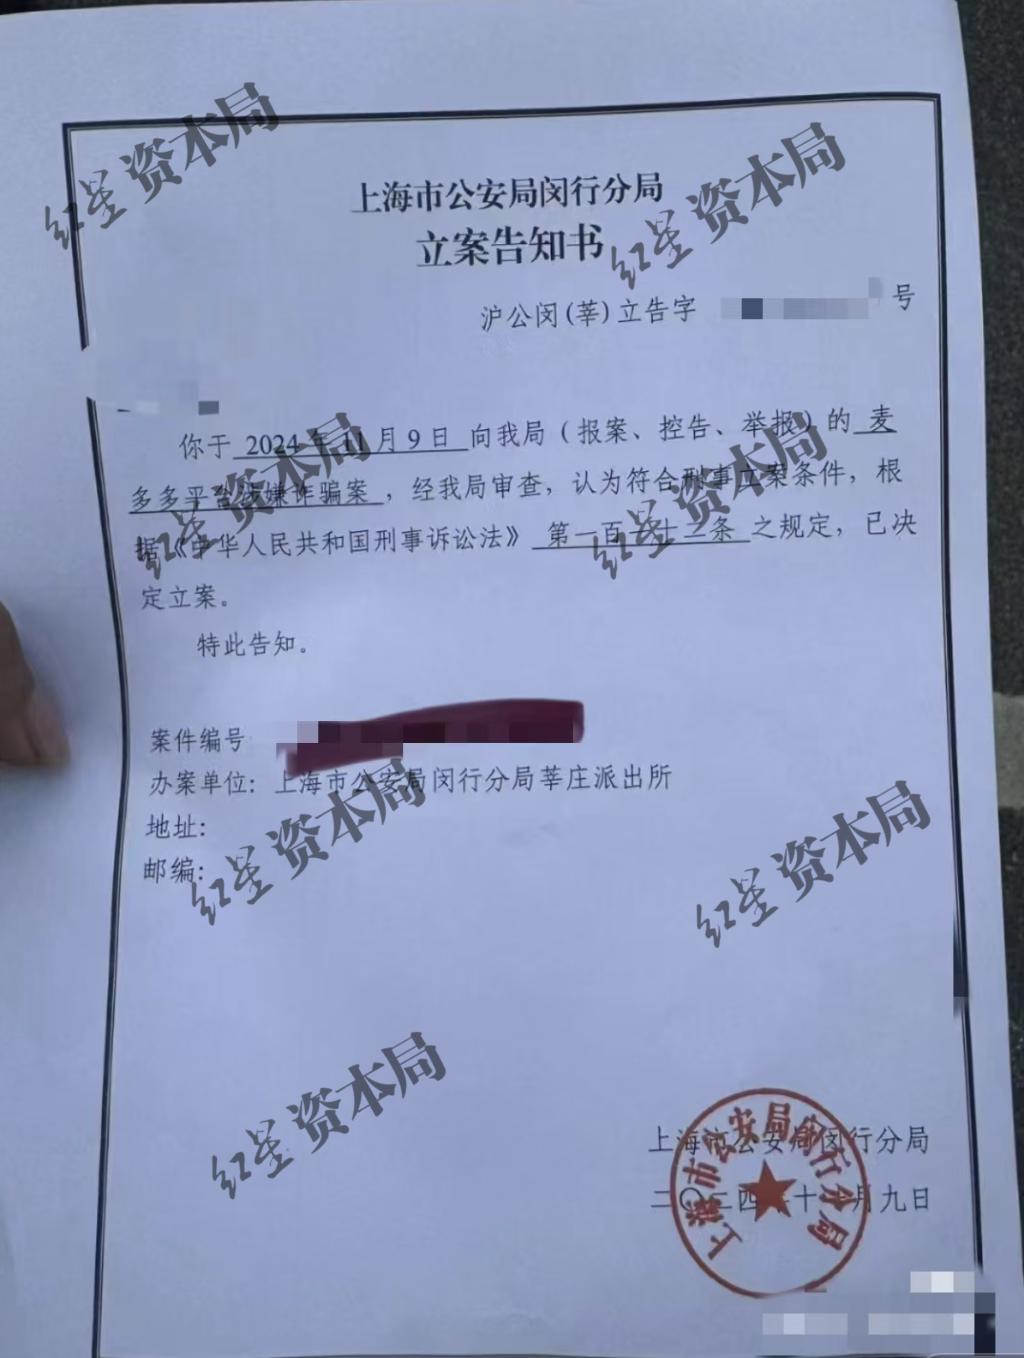 上海市公安局闵行分局
立案告知书
沪公闵(莘)立告字 号
你于 2024年11月9日 向我局（报案、控告、举报）的 麦
多多平台涉嫌诈骗案，经我局审查，认为符合刑事立案条件，根
据《中华人民共和国刑事诉讼法》第一百一十二条 之规定，已决
定立案。
特此告知。
案件编号
办案单位：上海市公安局闵行分局莘庄派出所
地址：
邮编：
上海市公安局闵行分局
二〇二四年十 月九日
上海市公安局闵行分局
红星资本局
红星资本局
红星资本局
红星资本局
红星资本局
红星资本局
红星资本局